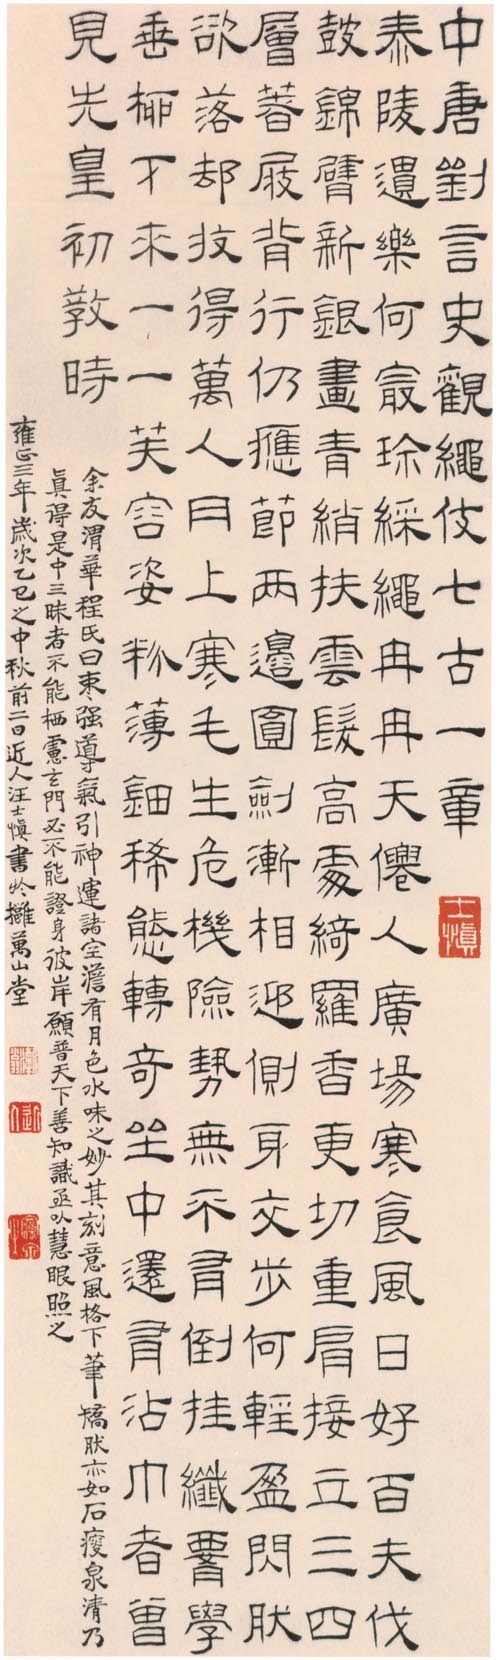 中唐劉言史觀繩伎七古一章
士慎
泰陵遺樂何最珍綵繩冉冉天僊人廣場寒食風日好百夫伐
鼓錦臂新銀畫青綃扶雲髮高處綺羅香更切重肩接立三四
層著屐背行仍應節兩邊圓劍漸相迎側身交步何輕盈閃肰
欲落却收得萬人肉上寒毛生危機險勢無不有倒挂纖腰學
垂柳下來一一芙容姿粉薄鈿稀態轉奇坐中還有沾巾者曾
見先皇初教時
余友渭華程氏曰棗强導氣引神運諸空澹有月色水味之妙其刻意風格下筆矯肰亦如石瘦泉清乃
真得是中三昧者不能栖慮玄門必不能證身彼岸願普天下善知識亟以慧眼照之
雍正三年歲次乙巳之中秋前二日近人汪士慎書於擁萬山堂